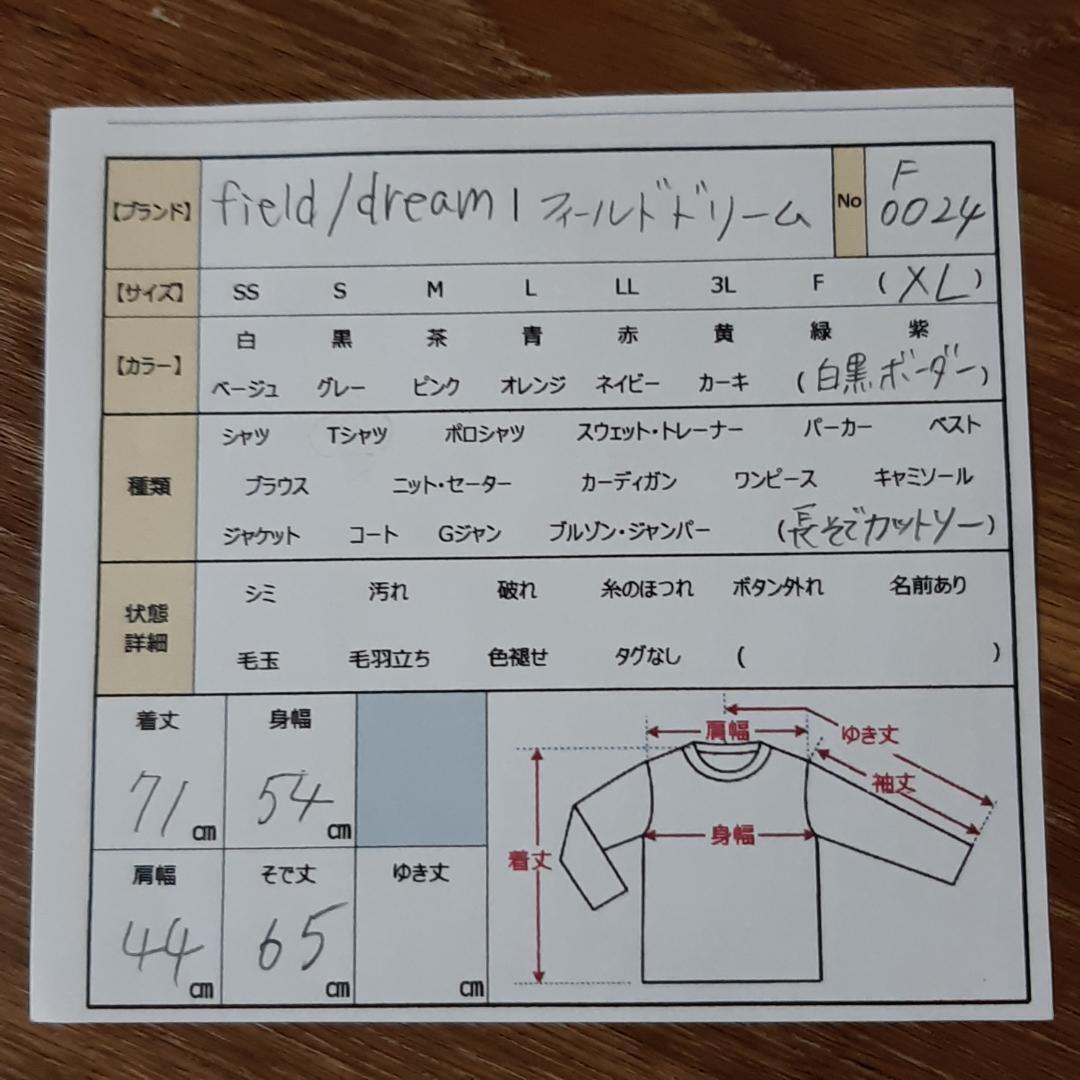 【ブランド】 field/dream | フィールドドリーム No F 0024
【サイズ】 SS S M L LL 3L F (XL)
【カラー】 白 黒 茶 青 赤 黄 緑 紫
ベージュ グレー ピンク オレンジ ネイビー カーキ (白黒ボーダー)
種類 シャツ Tシャツ ポロシャツ スウェット・トレーナー パーカー ベスト
ブラウス ニット・セーター カーディガン ワンピース キャミソール
ジャケット コート Gジャン ブルゾン・ジャンパー (長そでカットソー)
状態
詳細
シミ 汚れ 破れ 糸のほつれ ボタン外れ 名前あり
毛玉 毛羽立ち 色褪せ タグなし ( )
着丈 身幅
71 cm 54 cm
肩幅 そで丈 ゆき丈
44 cm 65 cm cm
肩幅 ゆき丈
袖丈
身幅
着丈